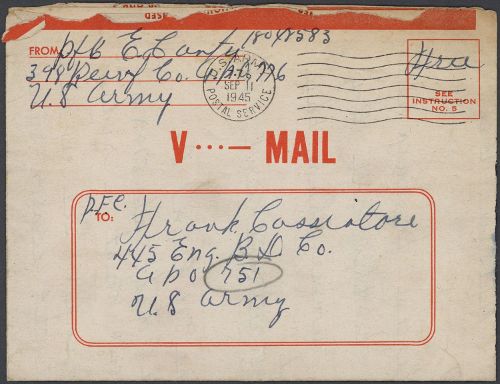 FROM Pfc E. Conty 18048583
398 Serv. Co. A.P.O. 776
U.S Army
U.S. ARMY
SEP 11
1945
POSTAL SERVICE
Free
SEE
INSTRUCTION
NO. 5
V ···— MAIL
P.F.C.
TO: Frank Cassiatore
445 Eng. B.D Co.
A P O 751
U.S Army